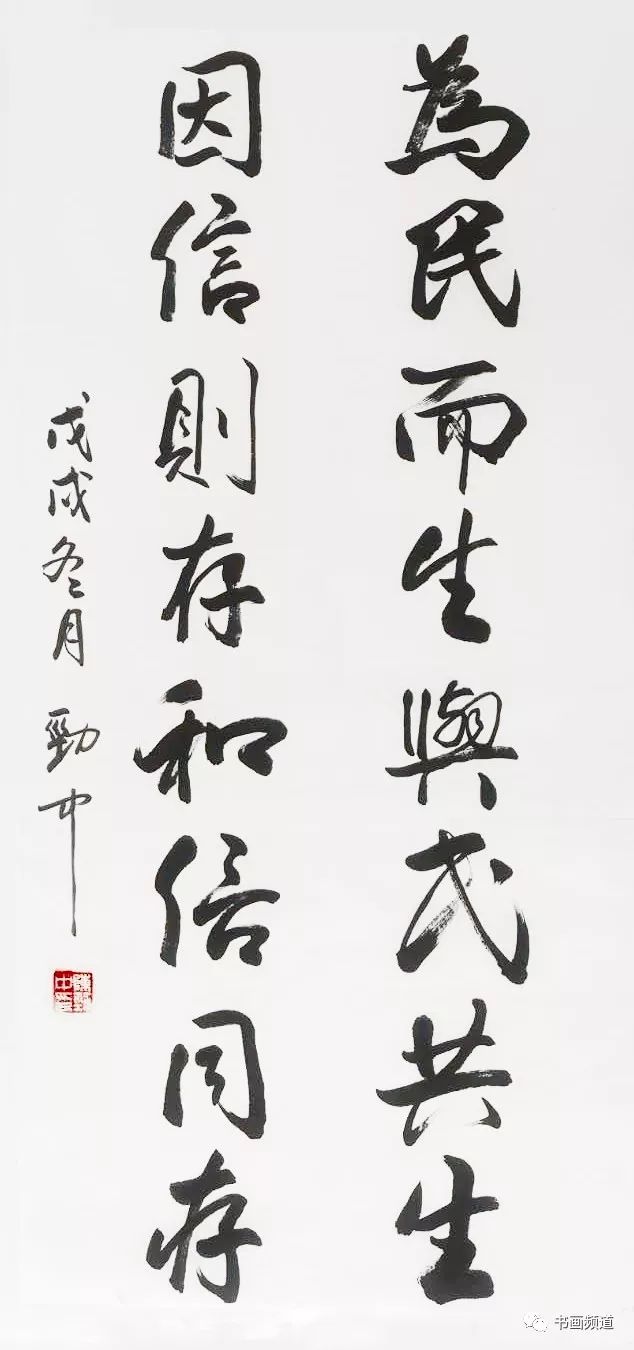 為民而生與民共生
因信則存和信同存
戊戌冬月 勁中
书画频道